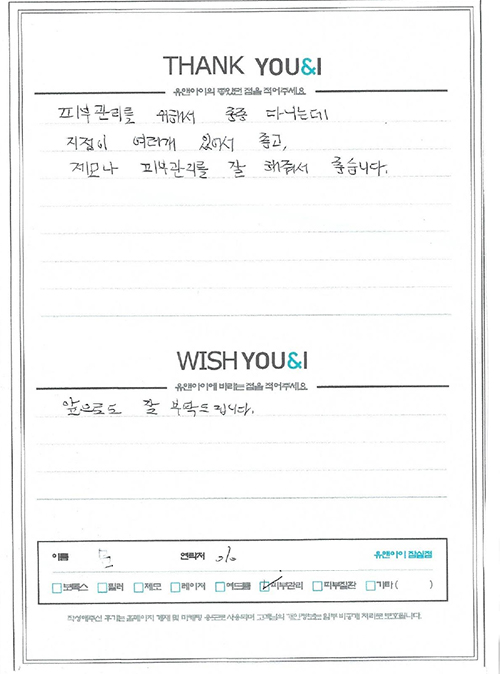 THANK YOU&I
유앤아이의 좋았던 점을 적어주세요
피부관리를 위해서 종종 다니는데
지점이 여러개 있어서 좋고,
제모나 피부관리를 잘 해줘서 좋습니다.
WISH YOU&I
유앤아이에 바라는 점을 적어주세요
앞으로도 잘 부탁드립니다.
이름 연락처 유앤아이 잠실점
보톡스 필러 제모 레이저 여드름 피부관리 피부질환 기타 ( )
작성해주신 후기는 홈페이지 게재 및 마케팅 용도로 사용되며 고객님의 개인정보는 일부 비공개 처리로 보호됩니다.